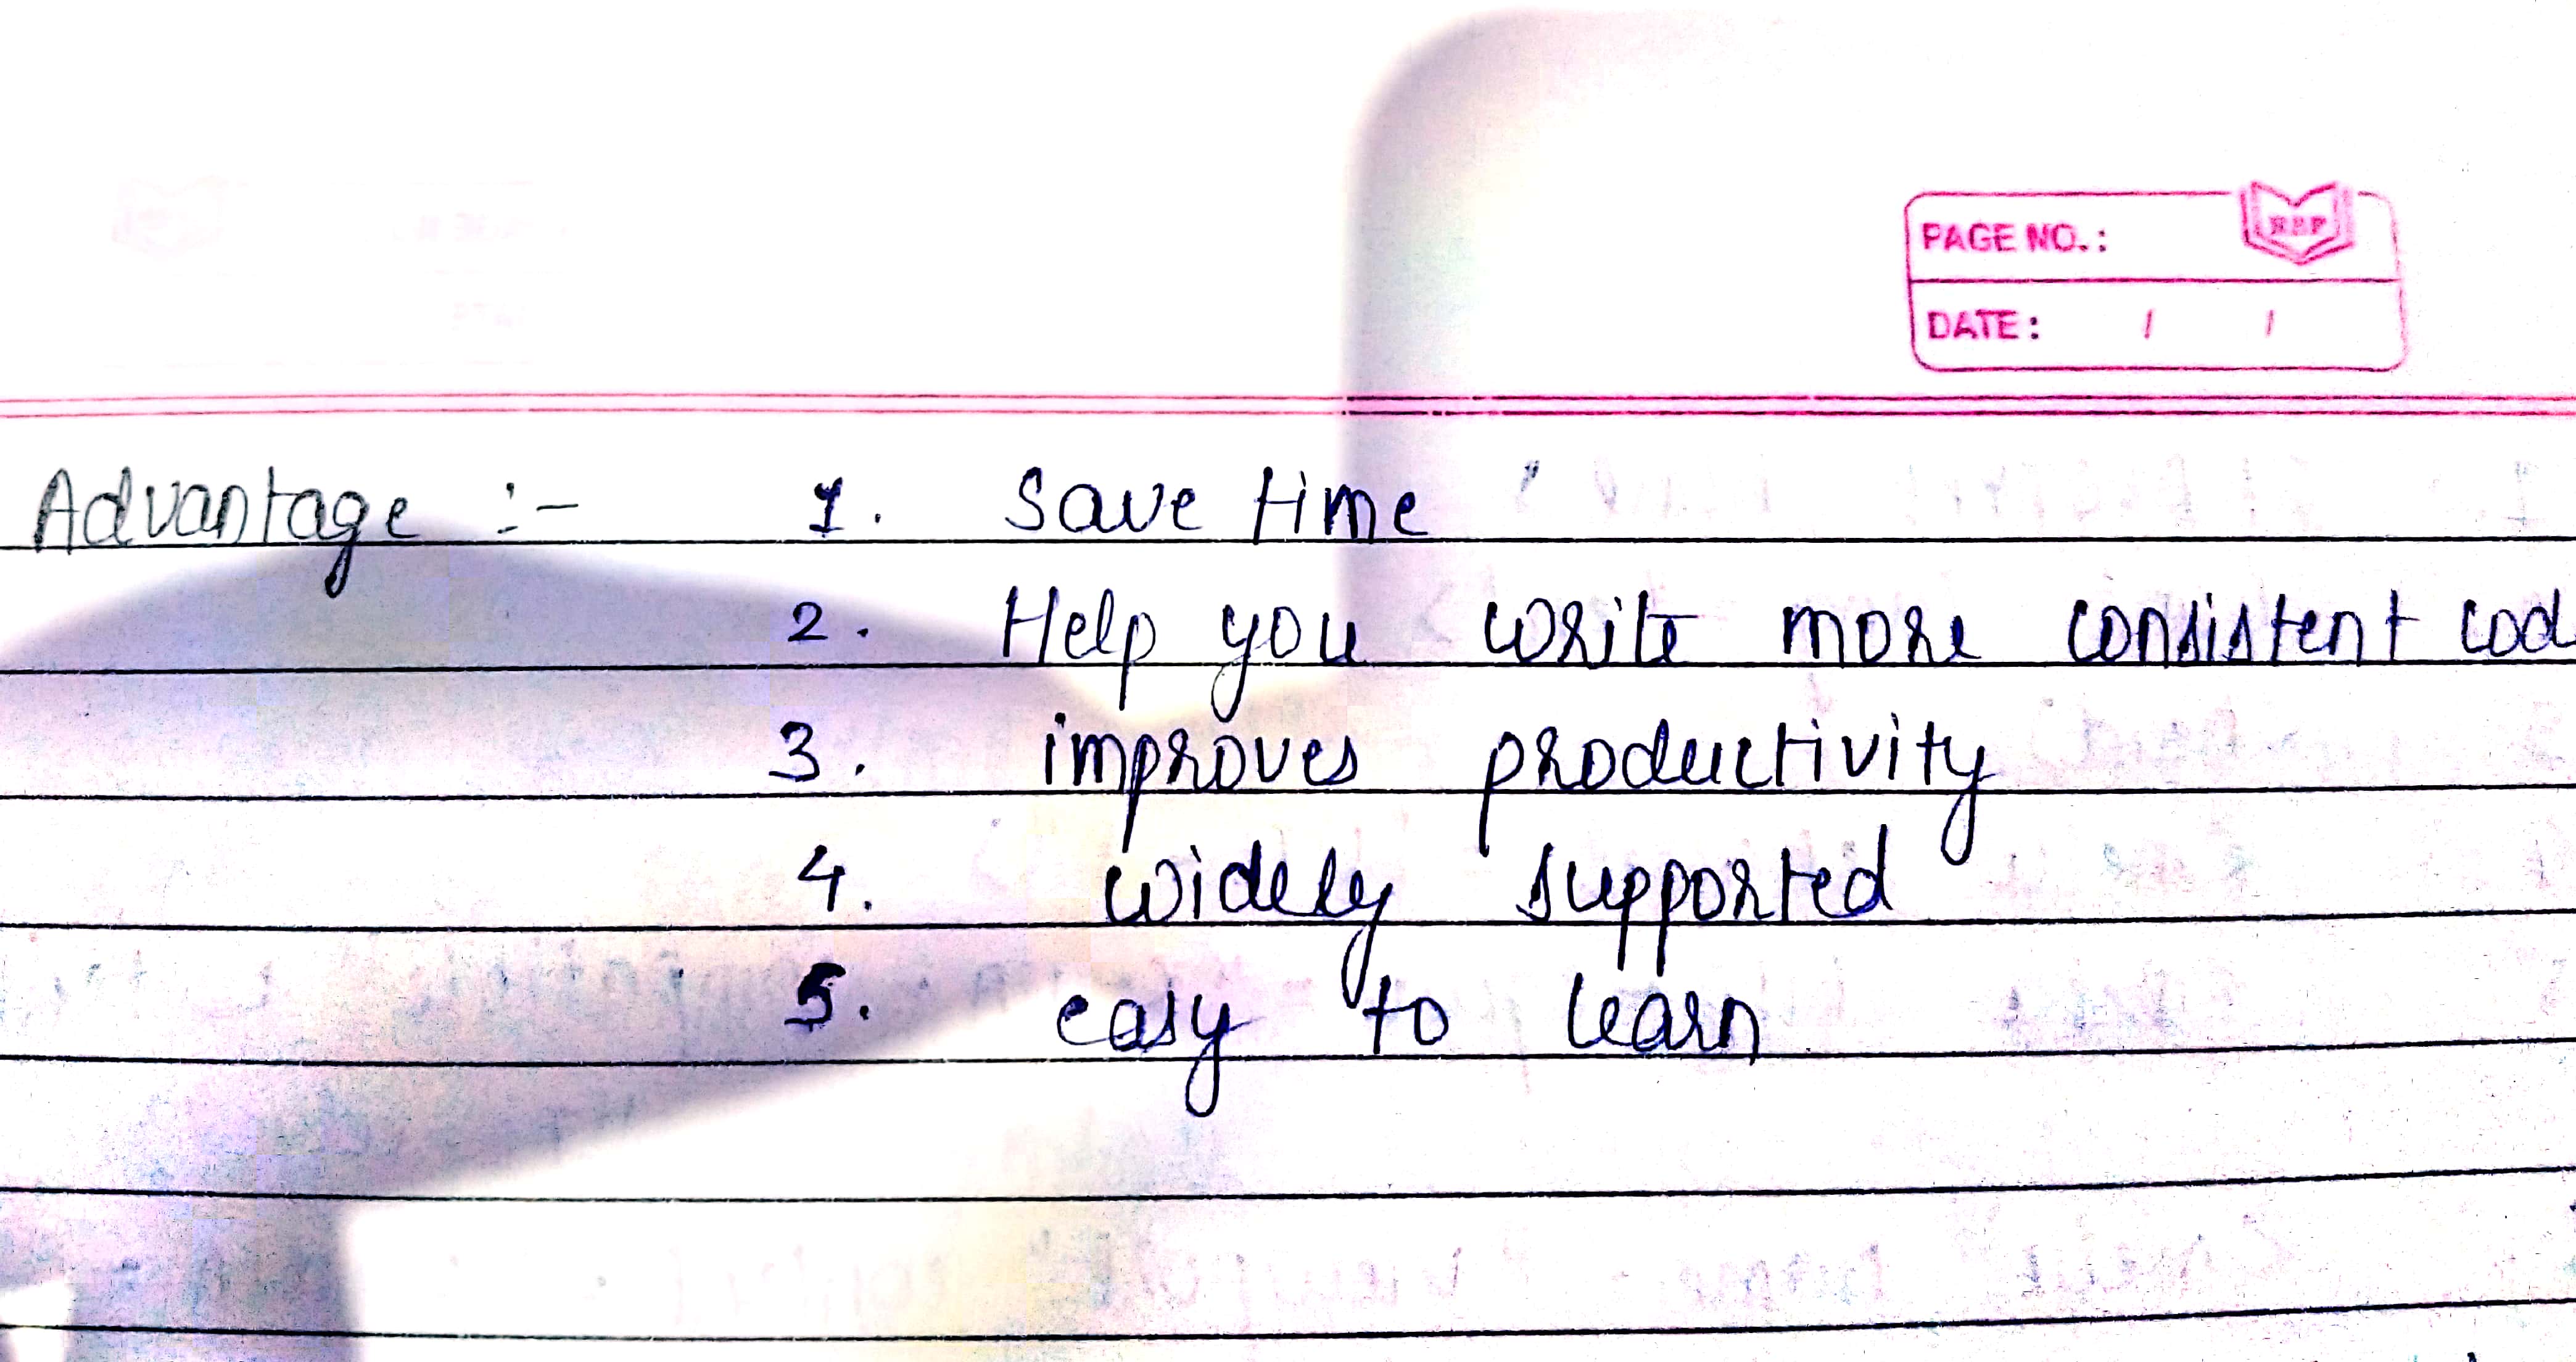 PAGE NO.:
DATE: / /
Advantage :- 1. Save time
2. Help you write more consistent cod
3. improves productivity
4. widely supported
5. easy to learn